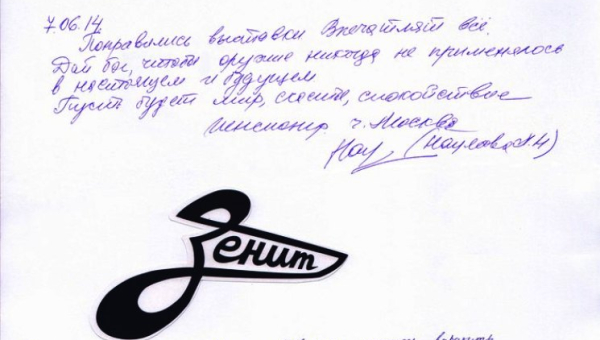 7.06.14
Понравились выставки Впечатляет всё.
Дай бог, чтобы оружие никогда не применялось
в настоящем и будущем
Пусть будет мир, счастье, спокойствие
Пенсионер г. Москва
Нау (Наулова Н.Н)
Зенит